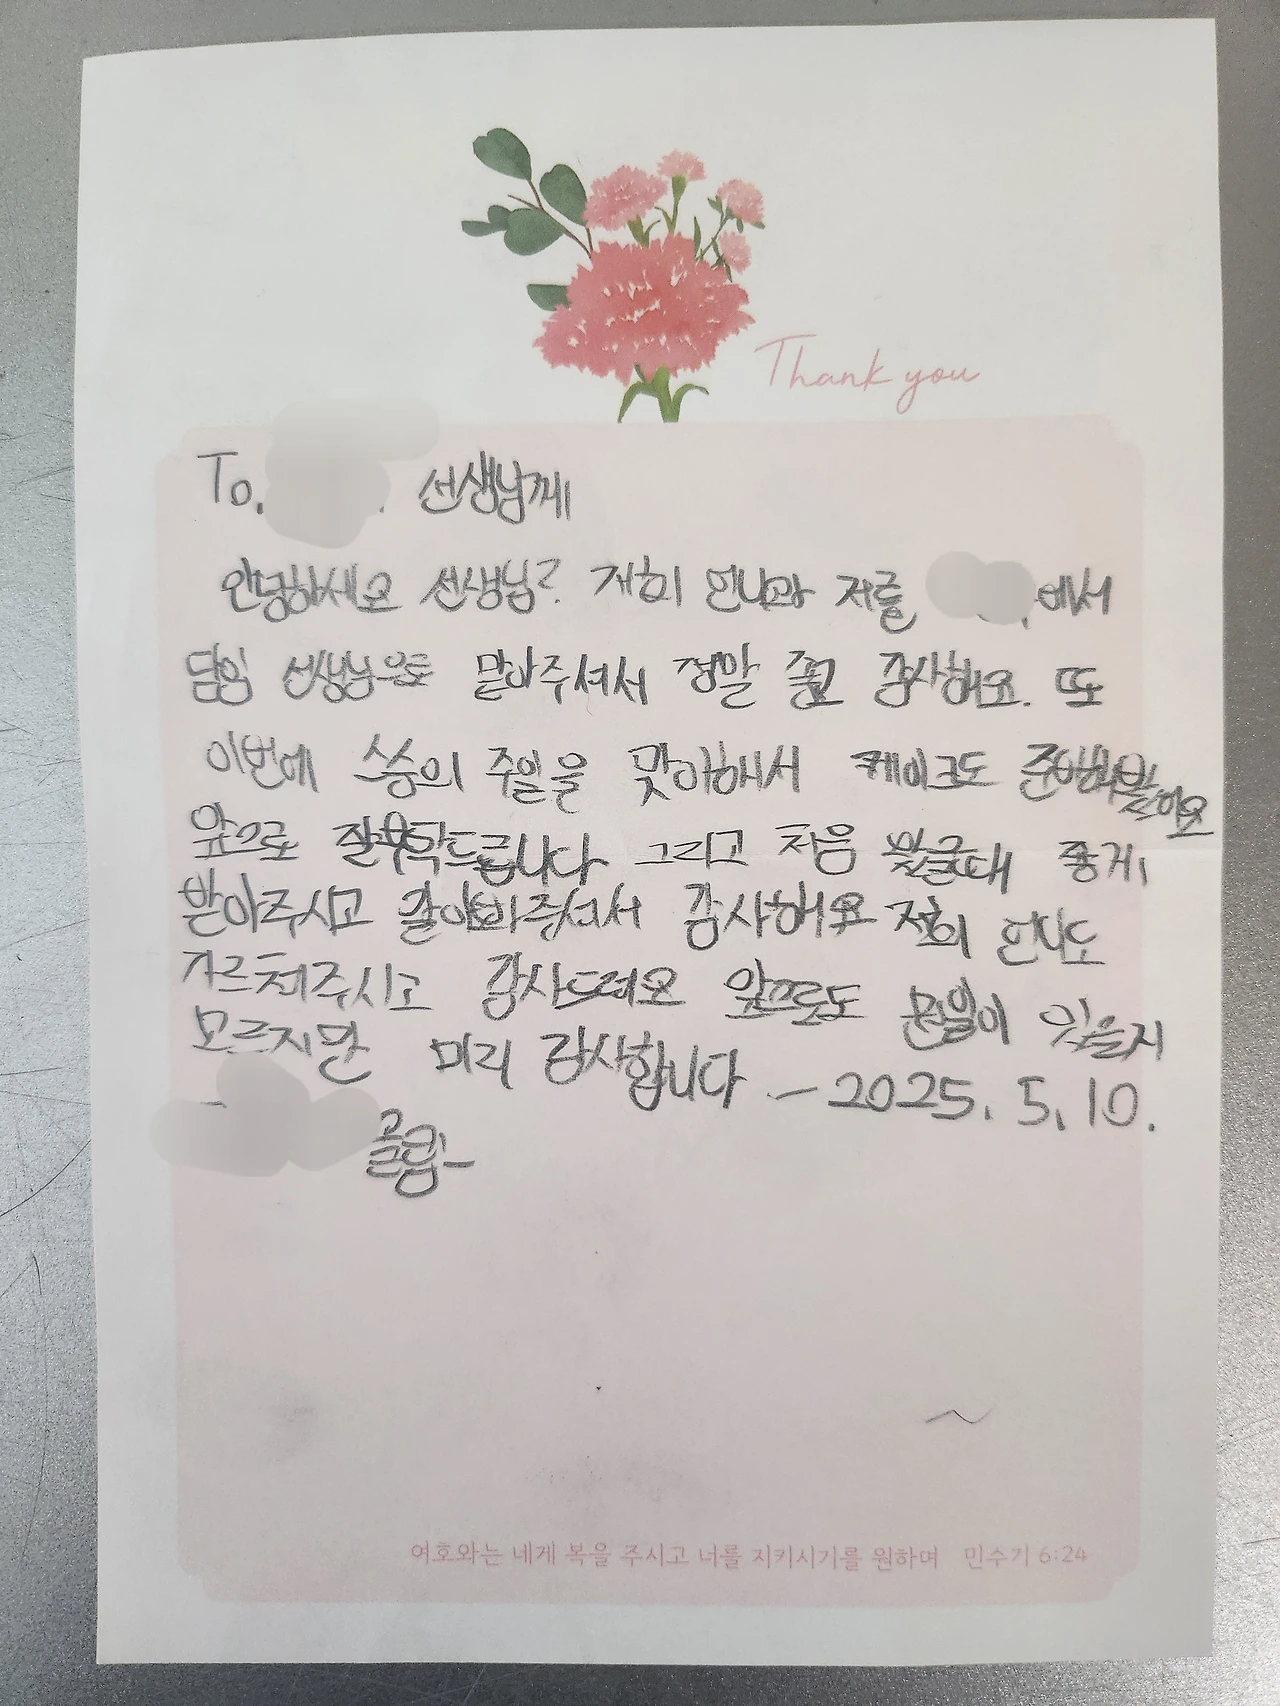 Thank you
To. 선생님께
안녕하세요 선생님? 저희 언니와 저를 에서
담임 선생님으로 맡아주셔서 정말 좋고 감사해요. 또
이번에 스승의 주일을 맞이해서 케이크도 준비해봤어요
앞으로 잘부탁드립니다 그리고 처음 왔을때 좋게
받아주시고 알아봐주셔서 감사해요 저희 언니도
가르쳐주시고 감사드려요 앞으로도 있을지
모르지만 미리 감사합니다 -2025. 5. 10.
올림-
여호와는 네게 복을 주시고 너를 지키시기를 원하며 민수기 6:24